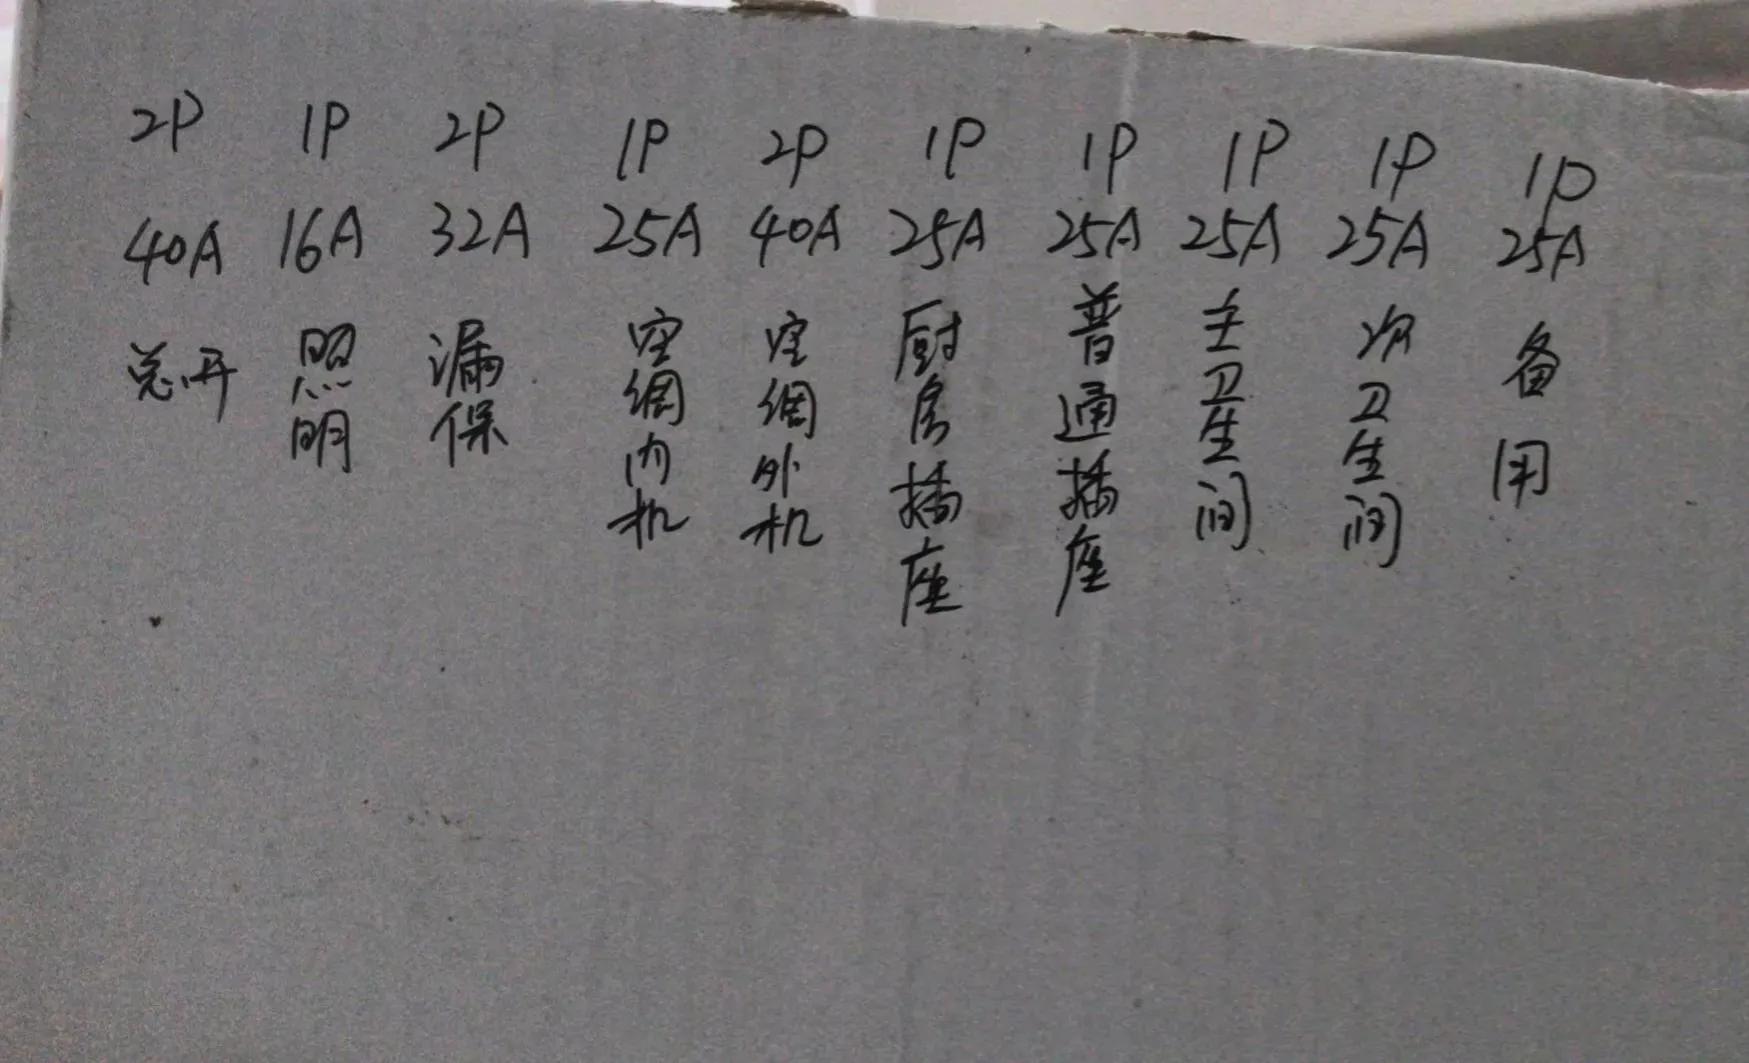 2P 1P 2P 1P 2P 1P 1P 1P 1P 1P
40A 16A 32A 25A 40A 25A 25A 25A 25A 25A
总开
照明
漏保
空调内机
空调外机
厨房插座
普通插座
主卫生间
次卫生间
备用